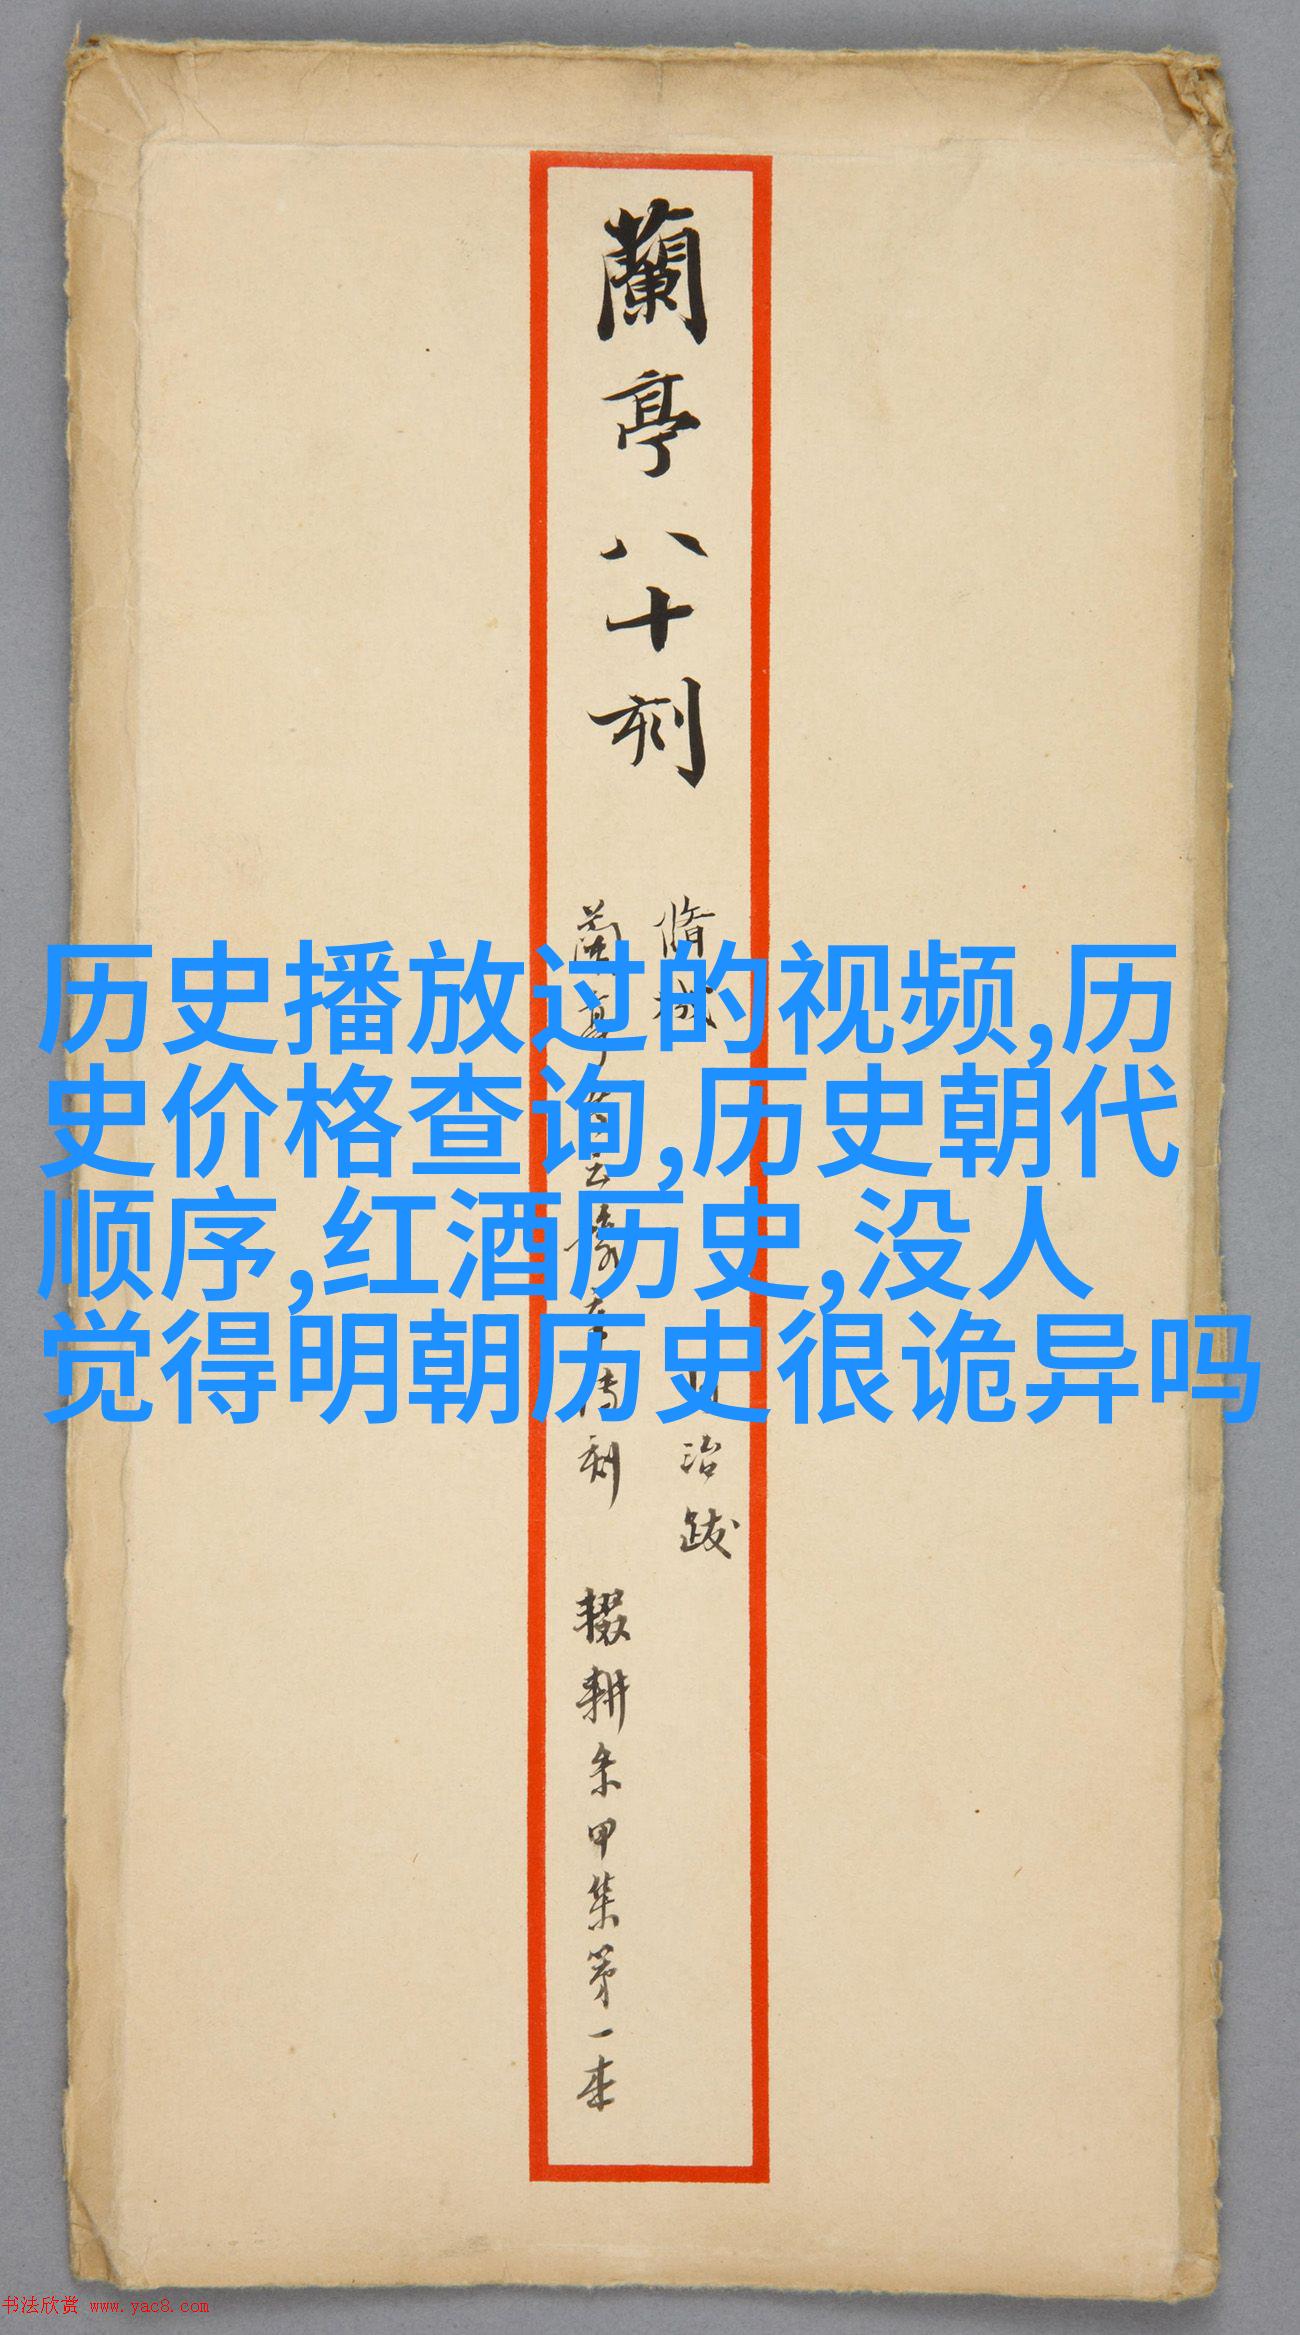 蘭亭八十刻
脩城
治跋
蘭亭
傳刻
輟耕帖甲集第一本
历史播放过的视频,历
史价格查询,历史朝代
顺序,红酒历史,没人
觉得明朝历史很诡异吗
书法欣赏 www.yac8.com